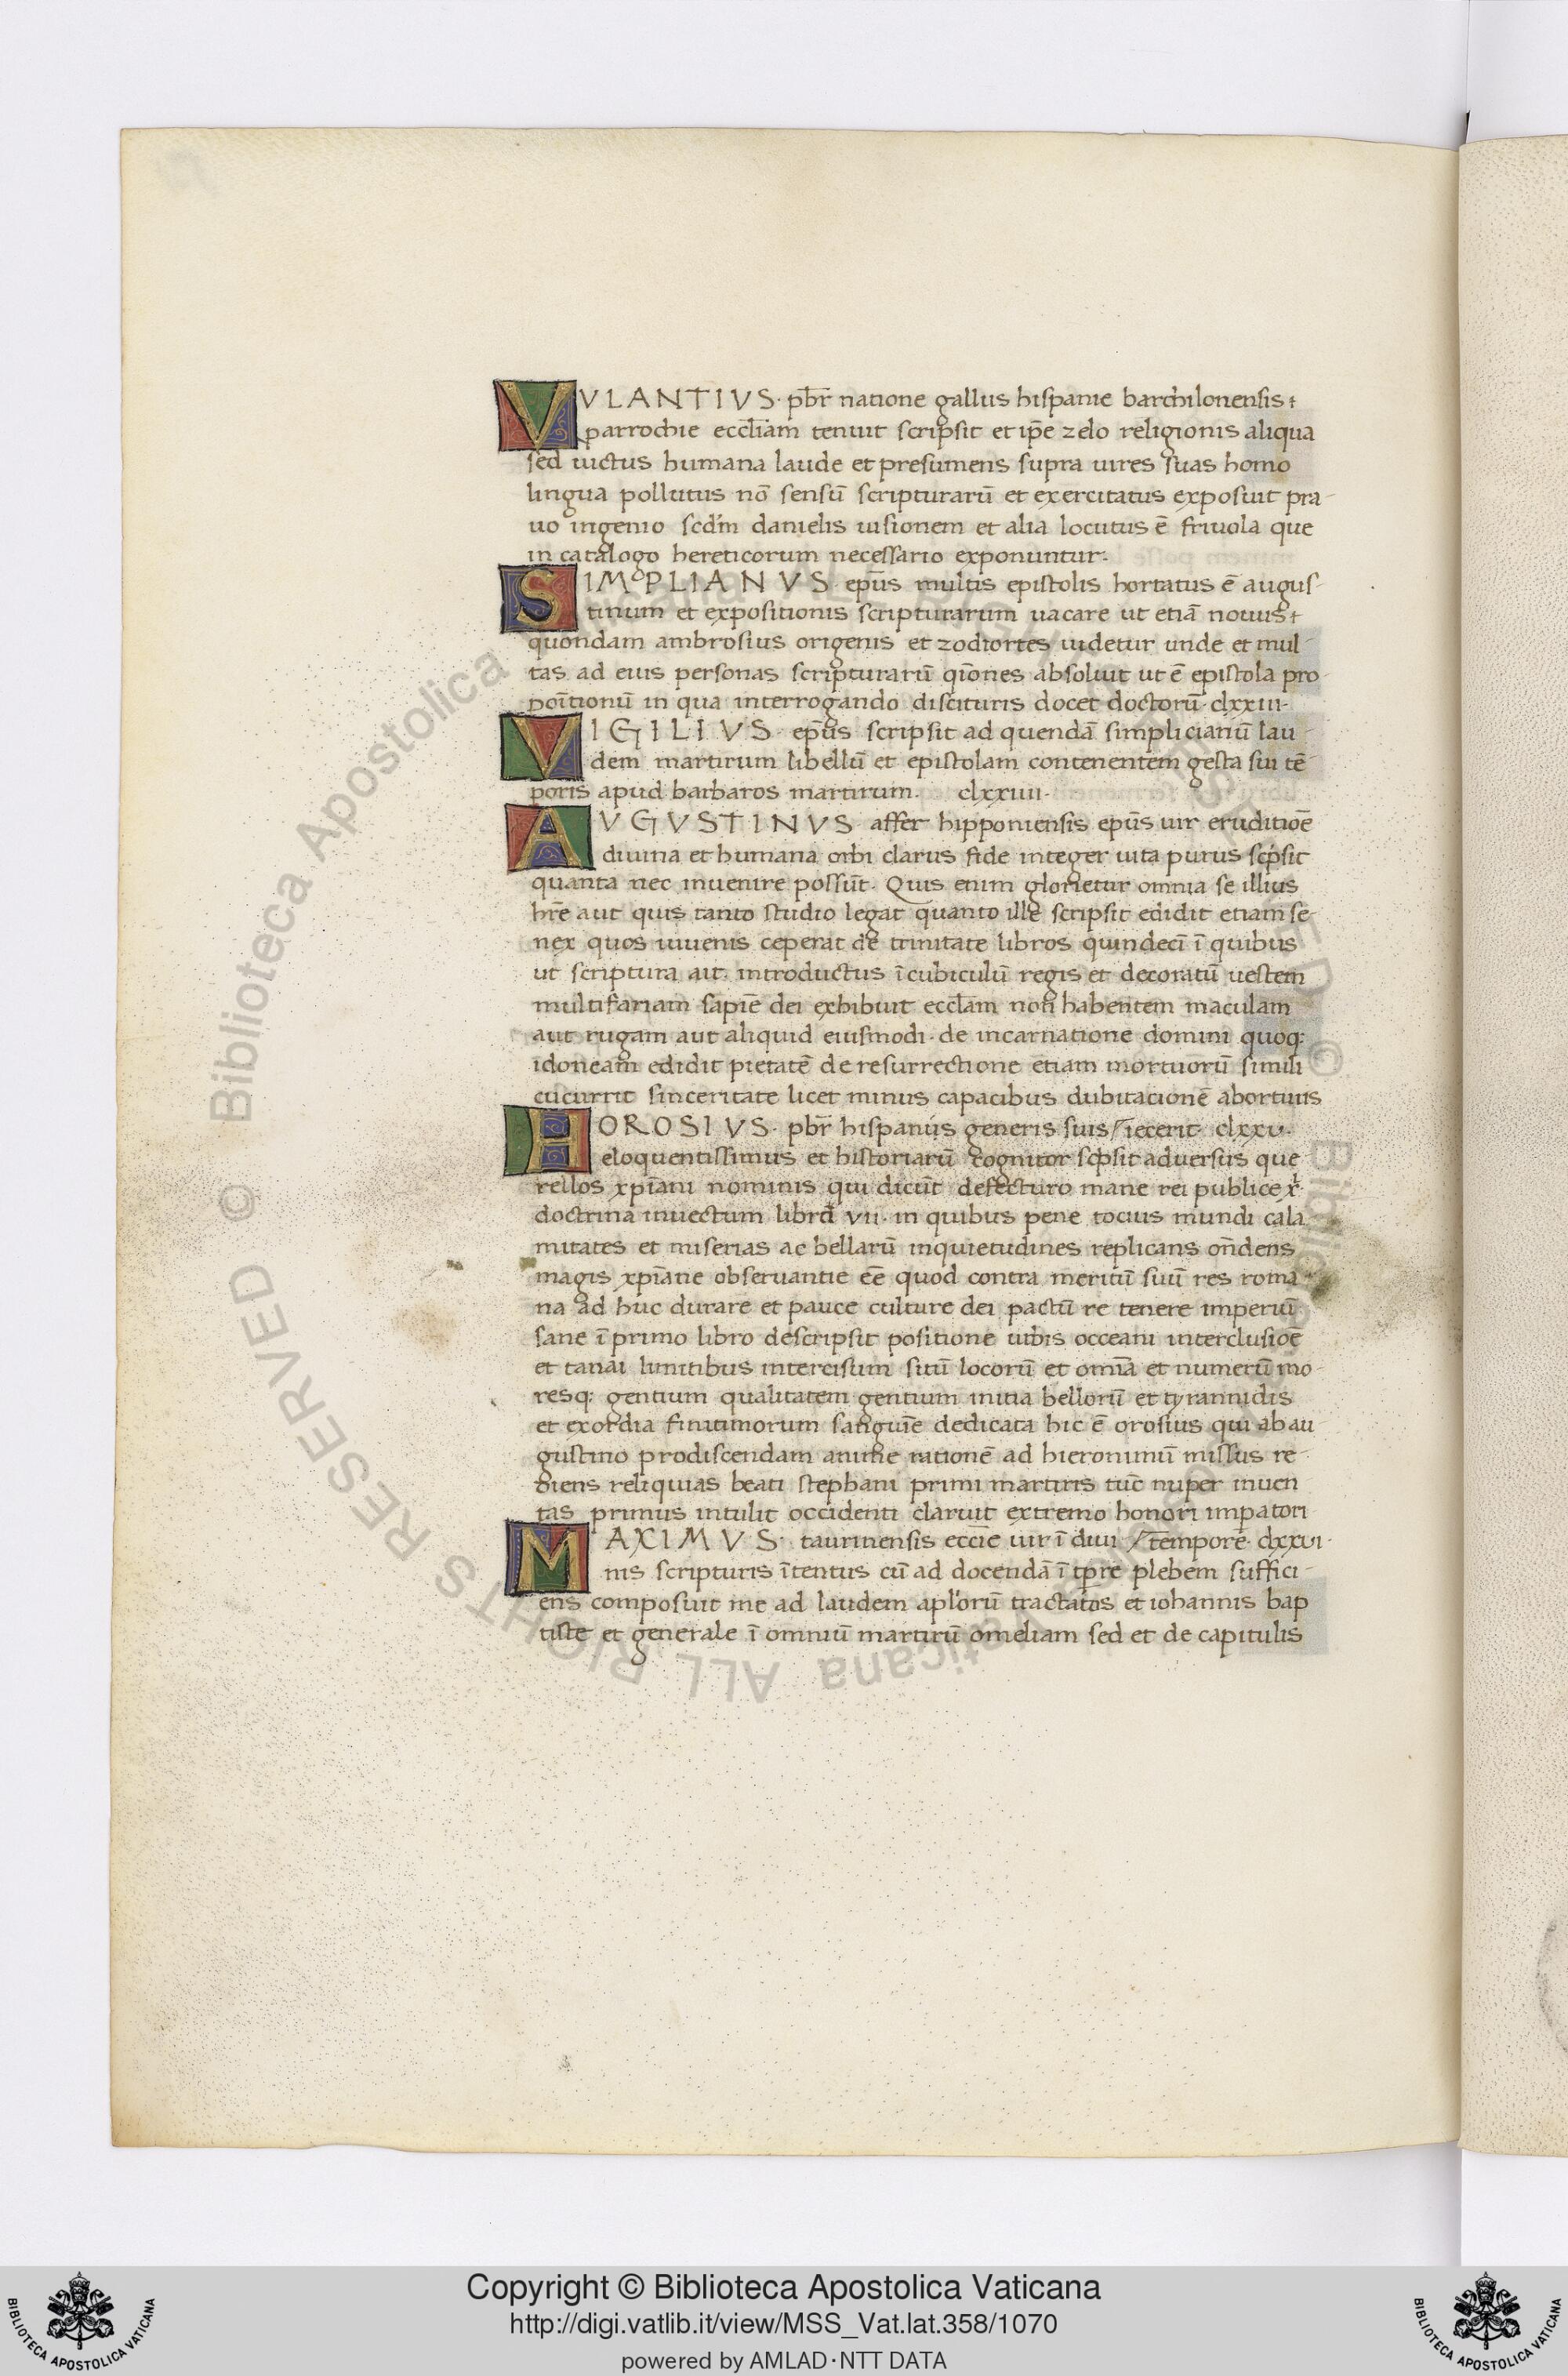 VVLANTIVS· pb̅r natione gallus hispanie barchilonensis
parrochie eccl̅iam tenuit scripsit et ip̅e zelo religionis aliqua
sed uictus humana laude et presumens supra uires suas homo
lingua pollutus no̅ sensu̅ scripturaru̅ et exercitatus exposuit pra-
uo ingenio scd̅m danielis uisionem et alia locutus e̅ friuola que
in catalogo hereticorum necessario exponuntur·
SIMPLIANVS· ep̅us multis epistolis hortatus e̅ augus-
tinum et expositionis scripturarum uacare ut etia̅ nouus
quondam ambrosius origenis et zodiortes uidetur unde et mul
tas ad eius personas scripturaru̅ qi̅ones absoluit ut e̅ epistola pro
poi̅tionu̅ in qua interrogando discituris docet doctoru̅· clxxiii·
VIGILIVS· ep̅us scripsit ad quenda̅ simplicianu̅ lau-
dem martirum libellu̅ et epistolam contenentem gesta sui te̅
poris apud barbaros martirum. clxxiiii·
AVGVSTINVS affer hipponiensis ep̅us uir eruditio̅e
diuina et humana orbi clarus fide integer uita purus scp̅sit
quanta nec inuenire possu̅t· Quis enim glorietur omnia se illius
hr̅e aut quis tanto studio legat quanto ille scripsit edidit etiam se-
nex quos iuuenis ceperat de trinitate libros quindeci̅ i̅ quibus
ut scriptura ait introductus i̅ cubiculu̅ regis et decoratu̅ uestem
multifariam sapie̅ dei exhibuit eccl̅am non habentem maculam
aut rugam aut aliquid eiusmodi· de incarnatione domini quoq;
idoneam edidit pietate̅ de resurrectione etiam mortuoru̅ simili
cucurrit sinceritate licet minus capacibus dubitacione̅ abortiuis
HOROSIVS· pb̅r hispanus generis suis / iecerit clxxv·
eloquentissimus et historiaru̅ cognitor scp̅sit aduersus que
rellos xp̅iani nominis qui dicu̅t defecturo mane rei publice x̅·
doctrina inuectum libro̅ vii· in quibus pene tocius mundi cala
mitates et miserias ac bellaru̅ inquietudines replicans on̅dens
magis xp̅iane obseruantie ee̅ quod contra meritu̅ suu̅ res roma
na ad huc durare et pauce culture dei pactu̅ re tenere imperiu̅
sane i̅ primo libro descripsit positione urbis occeani interclusio̅e
et tanai limitibus intercisum situ̅ locoru̅ et omi̅a et numeru̅ mo-
resq; gentium qualitatem gentium initia belloru̅ et tyrannidis
et exordia finitimorum sangui̅e dedicata hic e̅ orosius qui ab au
gustino prodiscendam anime ratione̅ ad hieronimu̅ missus re-
diens reliquias beati stephani primi martiris tu̅c nuper inuen
tas primus intulit occidenti claruit extremo honori imp̅atori
MAXIMVS· taurinensis ecci̅e uir i̅ diui / tempore· clxxvi·
nis scripturis i̅tentus cu̅ ad docenda̅ i̅ tp̅re plebem suffici-
ens composuit me ad laudem apl'oru̅ tractatos et iohannis bap
tiste et generale i̅ omniu̅ martiru̅ omeliam sed et de capitulis
© Biblioteca Apostolica Vaticana ALL RIGHTS RESERVED
Copyright © Biblioteca Apostolica Vaticana
http://digi.vatlib.it/view/MSS_Vat.lat.358/1070
powered by AMLAD·NTT DATA
BIBLIOTECA APOSTOLICA VATICANA
BIBLIOTECA APOSTOLICA VATICANA